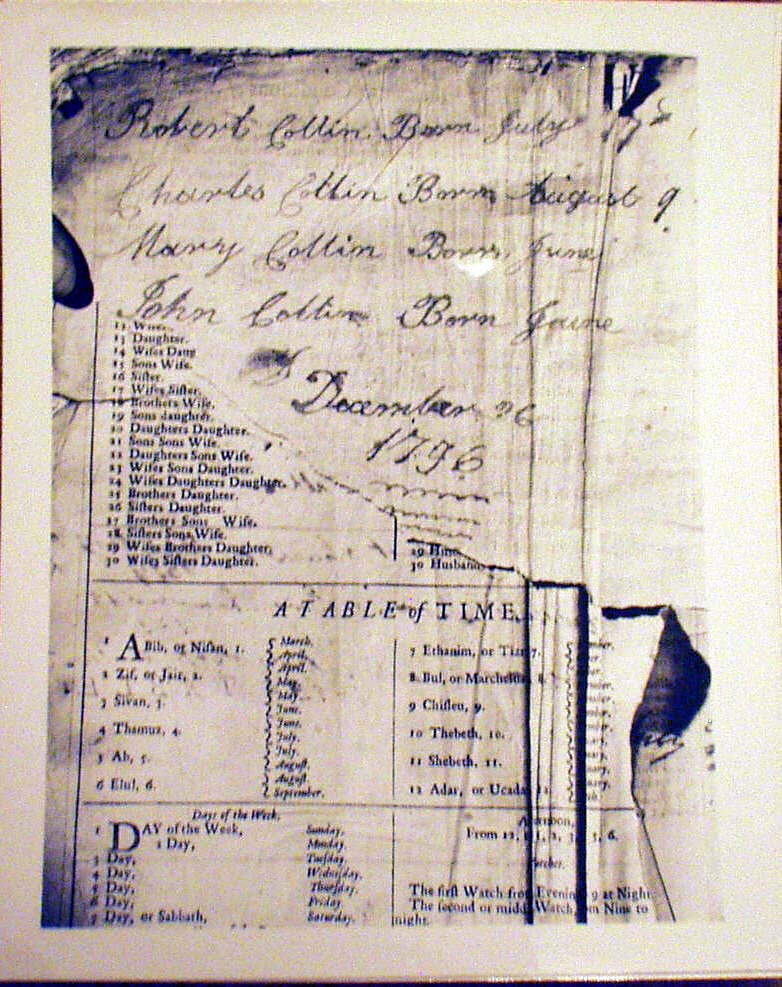 Robert Collin Born July 17
Charles Collin Born August 9
Mary Collin Born June
John Collin Born
December 26
1796
13 Daughter.
14 Wifes Daug
15 Sons Wife.
16 Sister.
17 Wifes Sister.
18 Brothers Wife.
19 Sons daughter.
20 Daughters Daughter.
21 Sons Sons Wife.
22 Daughters Sons Wife.
23 Wifes Sons Daughter.
24 Wifes Daughters Daughter.
25 Brothers Daughter.
26 Sisters Daughter.
27 Brothers Sons Wife.
28 Sisters Sons Wife.
29 Wifes Brothers Daughter.
30 Wifes Sisters Daughter.
29
30 Husband
A TABLE of TIME.
1 ABib, or Nisan, 1.
March.
April.
2 Zif, or Jair, 2.
April.
May.
3 Sivan, 3.
May.
June.
4 Thamuz, 4.
June.
July.
5 Ab, 5.
July.
August.
6 Elul, 6.
August.
September.
7 Ethanim, or 7.
8 Bul, or 8.
9 Chisleu, 9.
10 Thebeth, 10.
11 Shebeth, 11.
12 Adar, or 12
Days of the Week.
1 DAY of the Week, Sunday.
2 Day, Monday.
3 Day, Tuesday.
4 Day, Wednesday.
5 Day, Thursday.
6 Day, Friday
7 Day, or Sabbath, Saturday.
Afternoon,
From 12, 1, 2, 3, 5, 6.
The first Watch from Evening 9 at Night.
The second or Watch, Nine to
night.